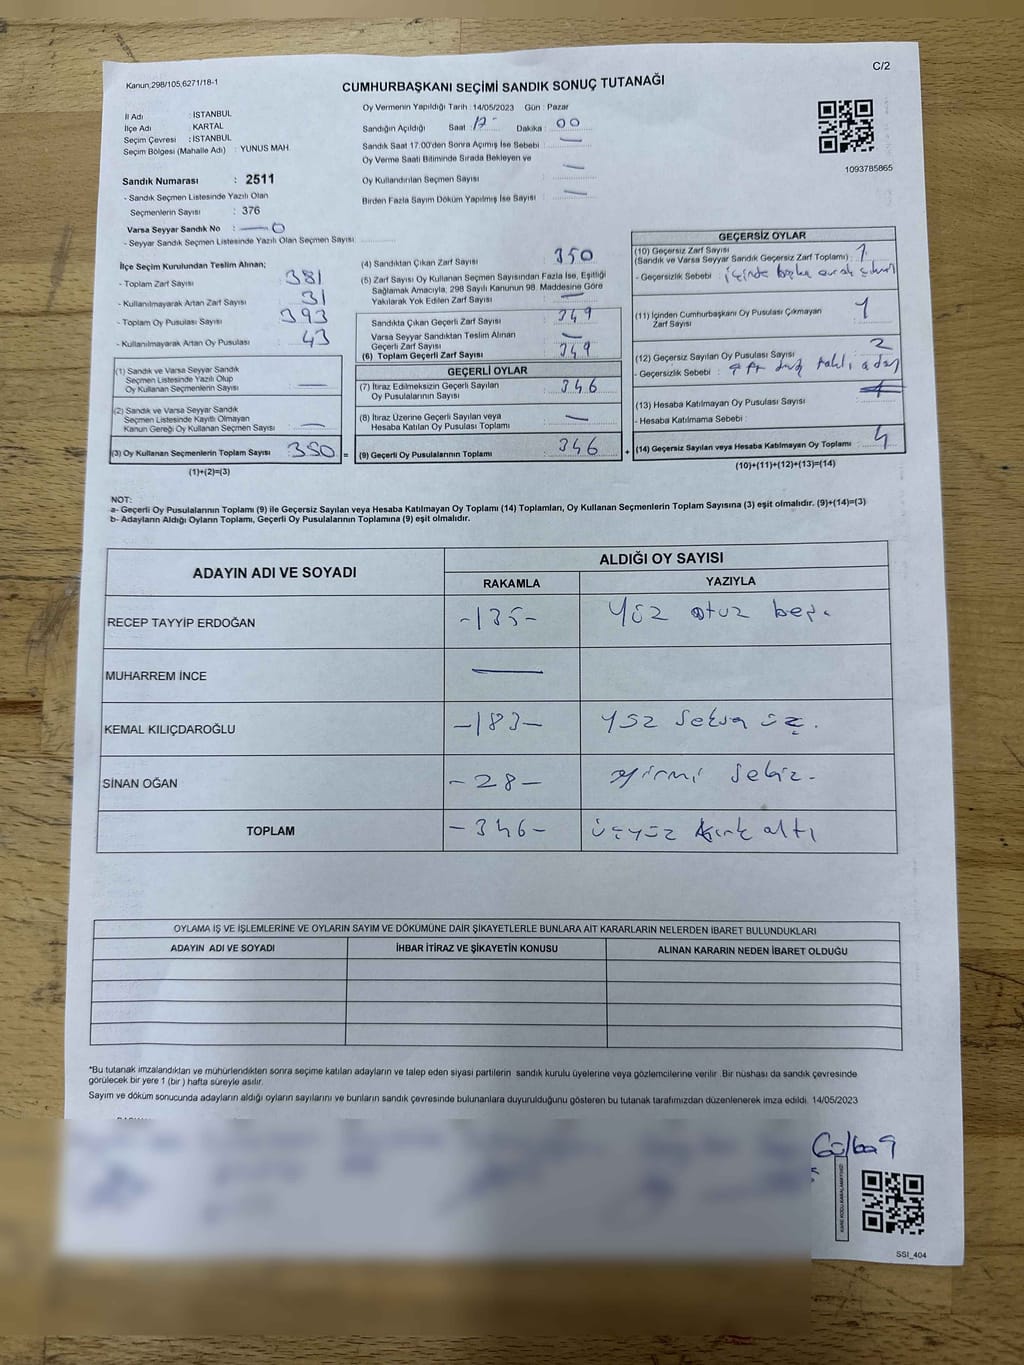 C/2
Kanun,298/105,6271/18-1
CUMHURBAŞKANI SEÇİMİ SANDIK SONUÇ TUTANAĞI
İl Adı : İSTANBUL
İlçe Adı : KARTAL
Seçim Çevresi : İSTANBUL
Seçim Bölgesi (Mahalle Adı) : YUNUS MAH.
Oy Vermenin Yapıldığı Tarih : 14/05/2023 Gün : Pazar
Sandığın Açıldığı Saat : 17 - Dakika : 00
Sandık Saat 17.00'den Sonra Açımış İse Sebebi : —
Oy Verme Saati Bitiminde Sırada Bekleyen ve
Oy Kullandırılan Seçmen Sayısı : —
Birden Fazla Sayım Döküm Yapılmış İse Sayısı : —
1093785865
Sandık Numarası : 2511
- Sandık Seçmen Listesinde Yazılı Olan
Seçmenlerin Sayısı : 376
Varsa Seyyar Sandık No : — 0
- Seyyar Sandık Seçmen Listesinde Yazılı Olan Seçmen Sayısı
İlçe Seçim Kurulundan Teslim Alınan;
- Toplam Zarf Sayısı : 381
- Kullanılmayarak Artan Zarf Sayısı : 31
- Toplam Oy Pusulası Sayısı : 393
- Kullanılmayarak Artan Oy Pusulası : 43
(1) Sandık ve Varsa Seyyar Sandık
Seçmen Listesinde Yazılı Olup
Oy Kullanan Seçmenlerin Sayısı : —
(2) Sandık ve Varsa Seyyar Sandık
Seçmen Listesinde Kayıtlı Olmayan
Kanun Gereği Oy Kullanan Seçmen Sayısı : —
(3) Oy Kullanan Seçmenlerin Toplam Sayısı : 350 =
(1)+(2)=(3)
(4) Sandıktan Çıkan Zarf Sayısı : 350
(5) Zarf Sayısı Oy Kullanan Seçmen Sayısından Fazla İse, Eşitliği
Sağlamak Amacıyla, 298 Sayılı Kanunun 98. Maddesine Göre
Yakılarak Yok Edilen Zarf Sayısı : —
Sandıkta Çıkan Geçerli Zarf Sayısı : 349
Varsa Seyyar Sandıktan Teslim Alınan
Geçerli Zarf Sayısı : —
(6) Toplam Geçerli Zarf Sayısı : 349
GEÇERLİ OYLAR
(7) İtiraz Edilmeksizin Geçerli Sayılan
Oy Pusulalarının Sayısı : 346
(8) İtiraz Üzerine Geçerli Sayılan veya
Hesaba Katılan Oy Pusulası Toplamı : —
(9) Geçerli Oy Pusulalarının Toplamı : 346 +
GEÇERSİZ OYLAR
(10) Geçersiz Zarf Sayısı
(Sandık ve Varsa Seyyar Sandık Geçersiz Zarf Toplamı) : 1
- Geçersizlik Sebebi : içinde başka evrak
(11) İçinden Cumhurbaşkanı Oy Pusulası Çıkmayan
Zarf Sayısı : 1
(12) Geçersiz Sayılan Oy Pusulası Sayısı : 2
- Geçersizlik Sebebi :
(13) Hesaba Katılmayan Oy Pusulası Sayısı :
- Hesaba Katılmama Sebebi :
(14) Geçersiz Sayılan veya Hesaba Katılmayan Oy Toplamı : 4
(10)+(11)+(12)+(13)=(14)
NOT:
a- Geçerli Oy Pusulalarının Toplamı (9) ile Geçersiz Sayılan veya Hesaba Katılmayan Oy Toplamı (14) Toplamları, Oy Kullanan Seçmenlerin Toplam Sayısına (3) eşit olmalıdır. (9)+(14)=(3)
b- Adayların Aldığı Oyların Toplamı, Geçerli Oy Pusulalarının Toplamına (9) eşit olmalıdır.
ADAYIN ADI VE SOYADI
ALDIĞI OY SAYISI
RAKAMLA YAZIYLA
RECEP TAYYİP ERDOĞAN -135- Yüz otuz beş.
MUHARREM İNCE —
KEMAL KILIÇDAROĞLU -183- Yüz seksen üç.
SİNAN OĞAN -28- yirmi sekiz.
TOPLAM -346- üçyüz kırk altı
OYLAMA İŞ VE İŞLEMLERİNE VE OYLARIN SAYIM VE DÖKÜMÜNE DAİR ŞİKAYETLERLE BUNLARA AİT KARARLARIN NELERDEN İBARET BULUNDUKLARI
ADAYIN ADI VE SOYADI İHBAR İTİRAZ VE ŞİKAYETİN KONUSU ALINAN KARARIN NEDEN İBARET OLDUĞU
*Bu tutanak imzalandıktan ve mühürlendikten sonra seçime katılan adayların ve talep eden siyasi partilerin sandık kurulu üyelerine veya gözlemcilerine verilir. Bir nüshası da sandık çevresinde
görülecek bir yere 1 (bir ) hafta süreyle asılır.
Sayım ve döküm sonucunda adayların aldığı oyların sayılarını ve bunların sandık çevresinde bulunanlara duyurulduğunu gösteren bu tutanak tarafımızdan düzenlenerek imza edildi. 14/05/2023
SSI_404